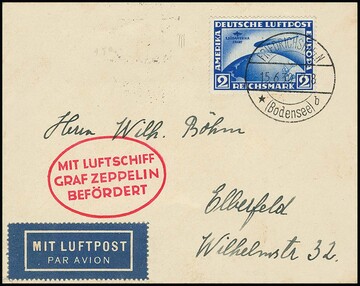 DEUTSCHE LUFTPOST
AMERIKA
EUROPA
2 REICHSMARK 2
FRIEDRICHSHAFEN
15.6.
(Bodensee) d
Herrn Wilh. Böhm
MIT LUFTSCHIFF
GRAF ZEPPELIN
BEFÖRDERT
Elberfeld
Wilhelmstr 32.
MIT LUFTPOST
PAR AVION